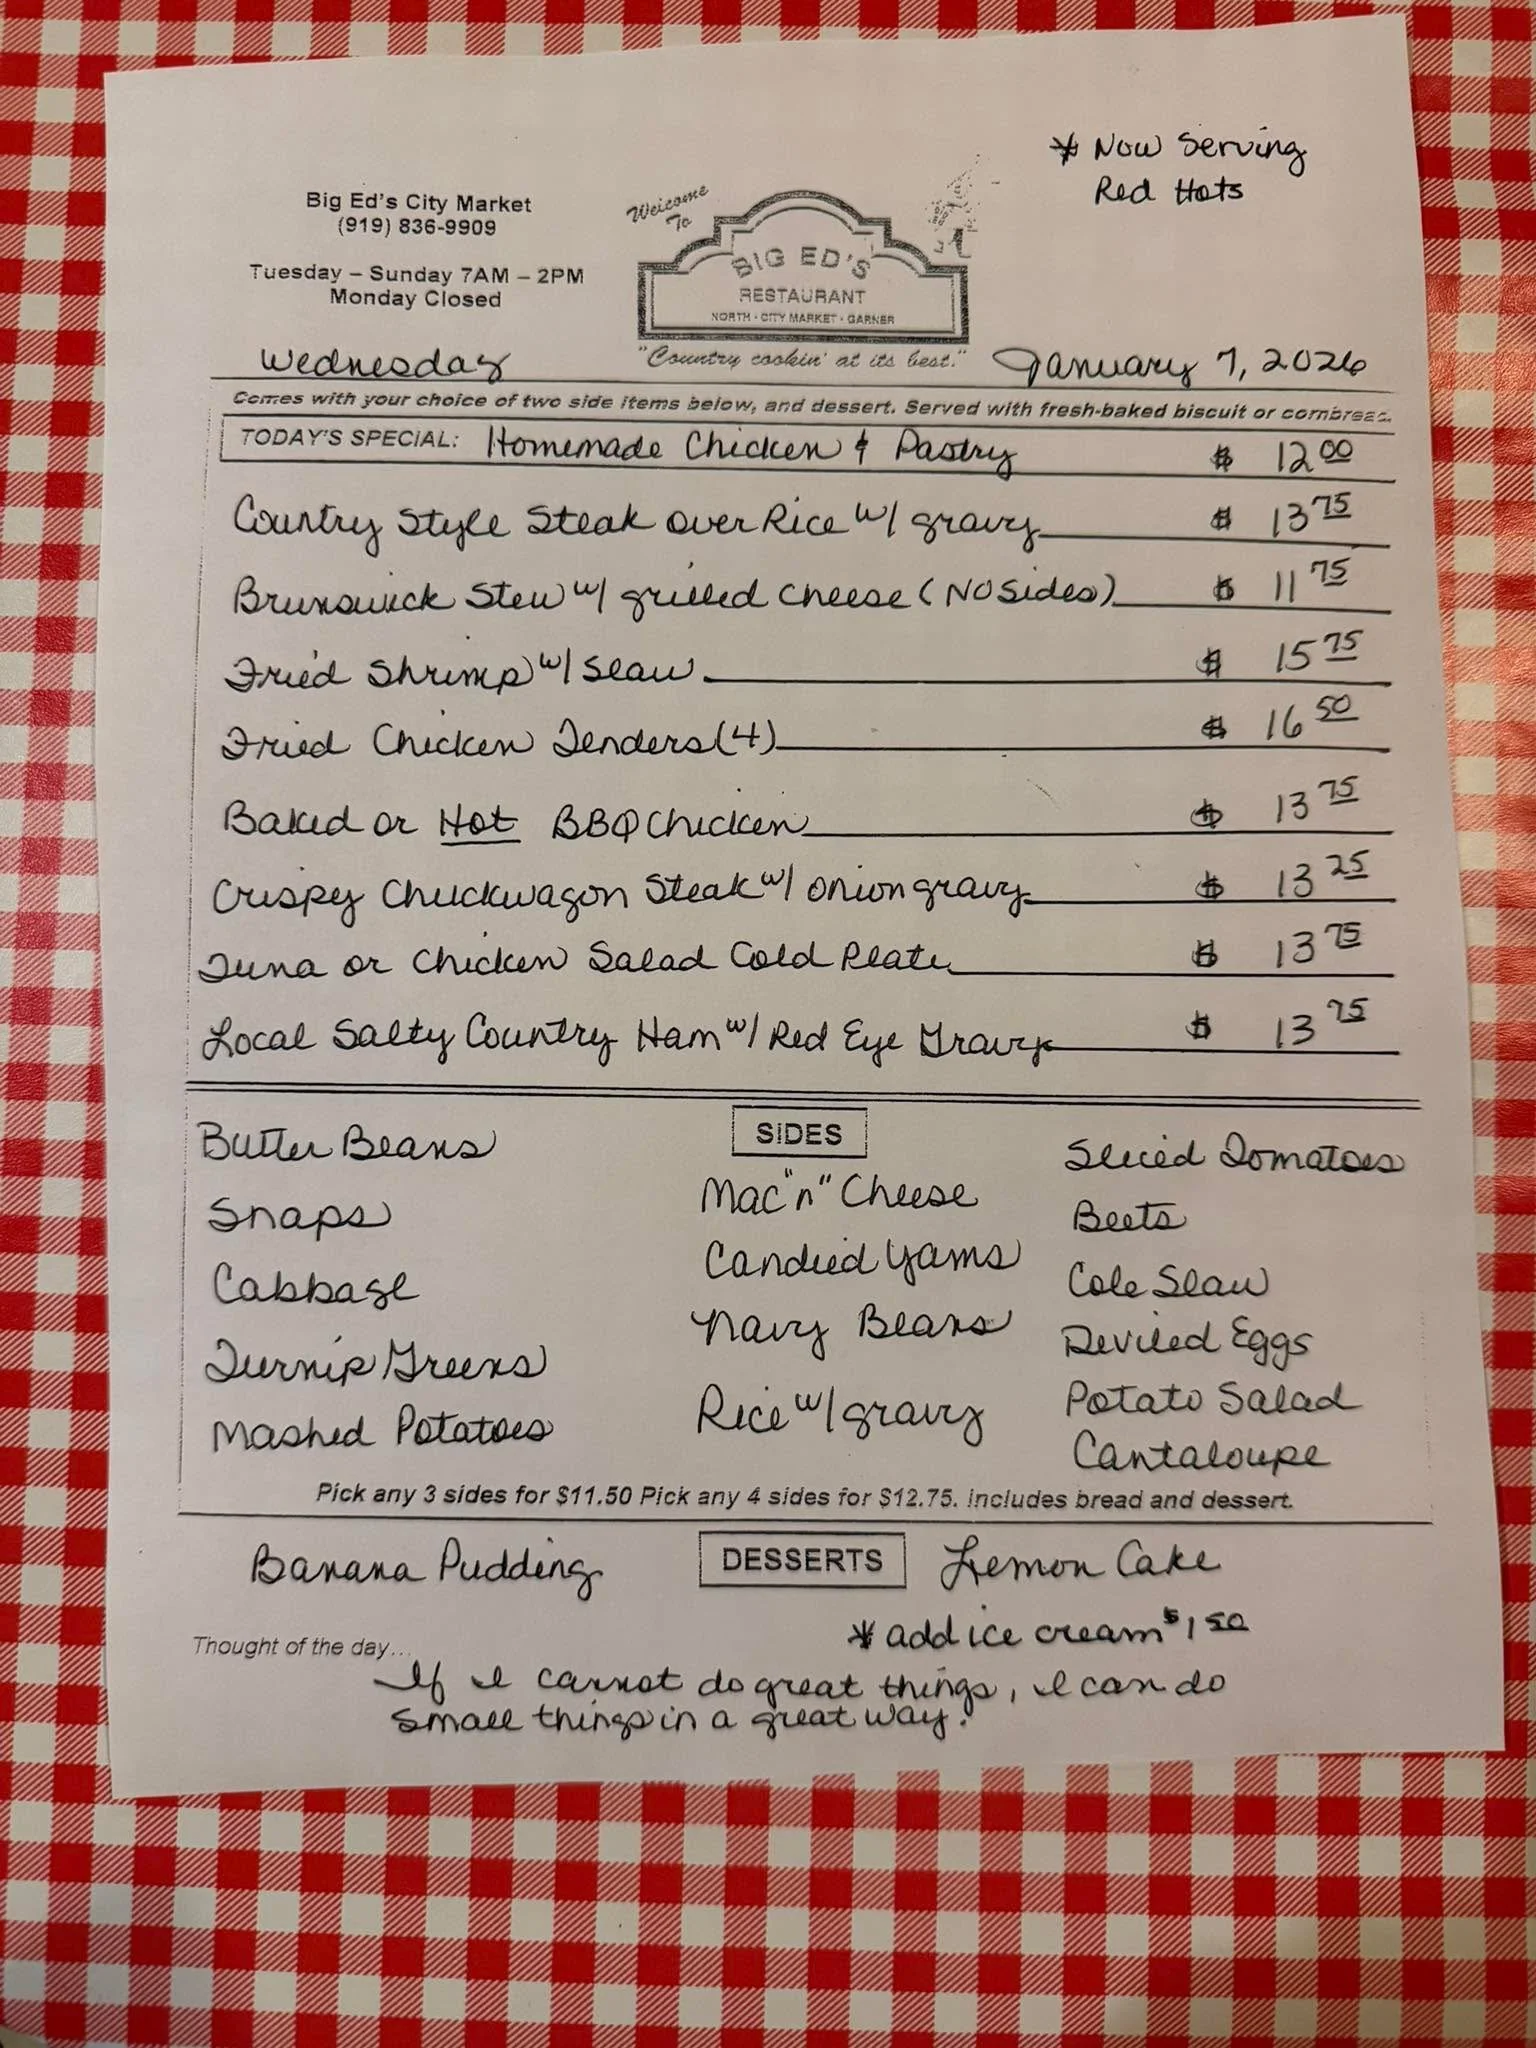 * Now Serving
Red Hots
Big Ed's City Market
(919) 836-9909
Tuesday – Sunday 7AM – 2PM
Monday Closed
Welcome
To
BIG ED'S
RESTAURANT
NORTH · CITY MARKET · GARNER
"Country cookin' at its best."
Wednesday January 7, 2026
Comes with your choice of two side items below, and dessert. Served with fresh-baked biscuit or cornbread.
TODAY'S SPECIAL: Homemade Chicken & Pastry $ 12 00
Country Style Steak over Rice w/ gravy $ 13 75
Brunswick Stew w/ grilled cheese (NO Sides) $ 11 75
Fried Shrimp w/ Slaw $ 15 75
Fried Chicken Tenders (4) $ 16 50
Baked or Hot BBQ Chicken $ 13 75
Crispy Chuckwagon Steak w/ onion gravy $ 13 25
Tuna or Chicken Salad Cold Plate $ 13 75
Local Salty Country Ham w/ Red Eye Gravy $ 13 75
SIDES
Butter Beans
Snaps
Cabbage
Turnip Greens
Mashed Potatoes
Mac "n" Cheese
Candied Yams
Navy Beans
Rice w/ gravy
Sliced Tomatoes
Beets
Cole Slaw
Deviled Eggs
Potato Salad
Cantaloupe
Pick any 3 sides for $11.50 Pick any 4 sides for $12.75. Includes bread and dessert.
DESSERTS
Banana Pudding
Lemon Cake
* add ice cream $1 50
Thought of the day...
If I cannot do great things, I can do
small things in a great way.